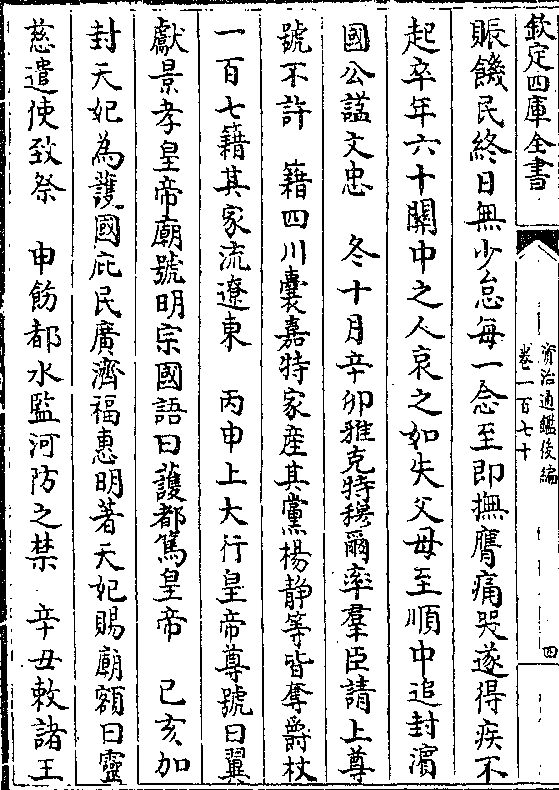 欽定四庫全書
資治通鑑後編
卷一百七十
四
賑饑民終日無少怠每一念至即撫膺痛哭遂得疾不
起卒年六十關中之人哀之如失父母至順中追封濵
國公諡文忠　冬十月辛卯雅克特穆爾率羣臣請上尊
號不許　籍四川囊嘉特家産其黨楊静等皆奪爵杖
一百七籍其家流遼東　丙申上大行皇帝尊號曰翼
獻景孝皇帝廟號明宗國語曰護都篤皇帝　己亥加
封天妃為護國庇民廣濟福惠明著天妃賜廟額曰靈
慈遣使致祭　申飭都水監河防之禁　辛丑敕諸王